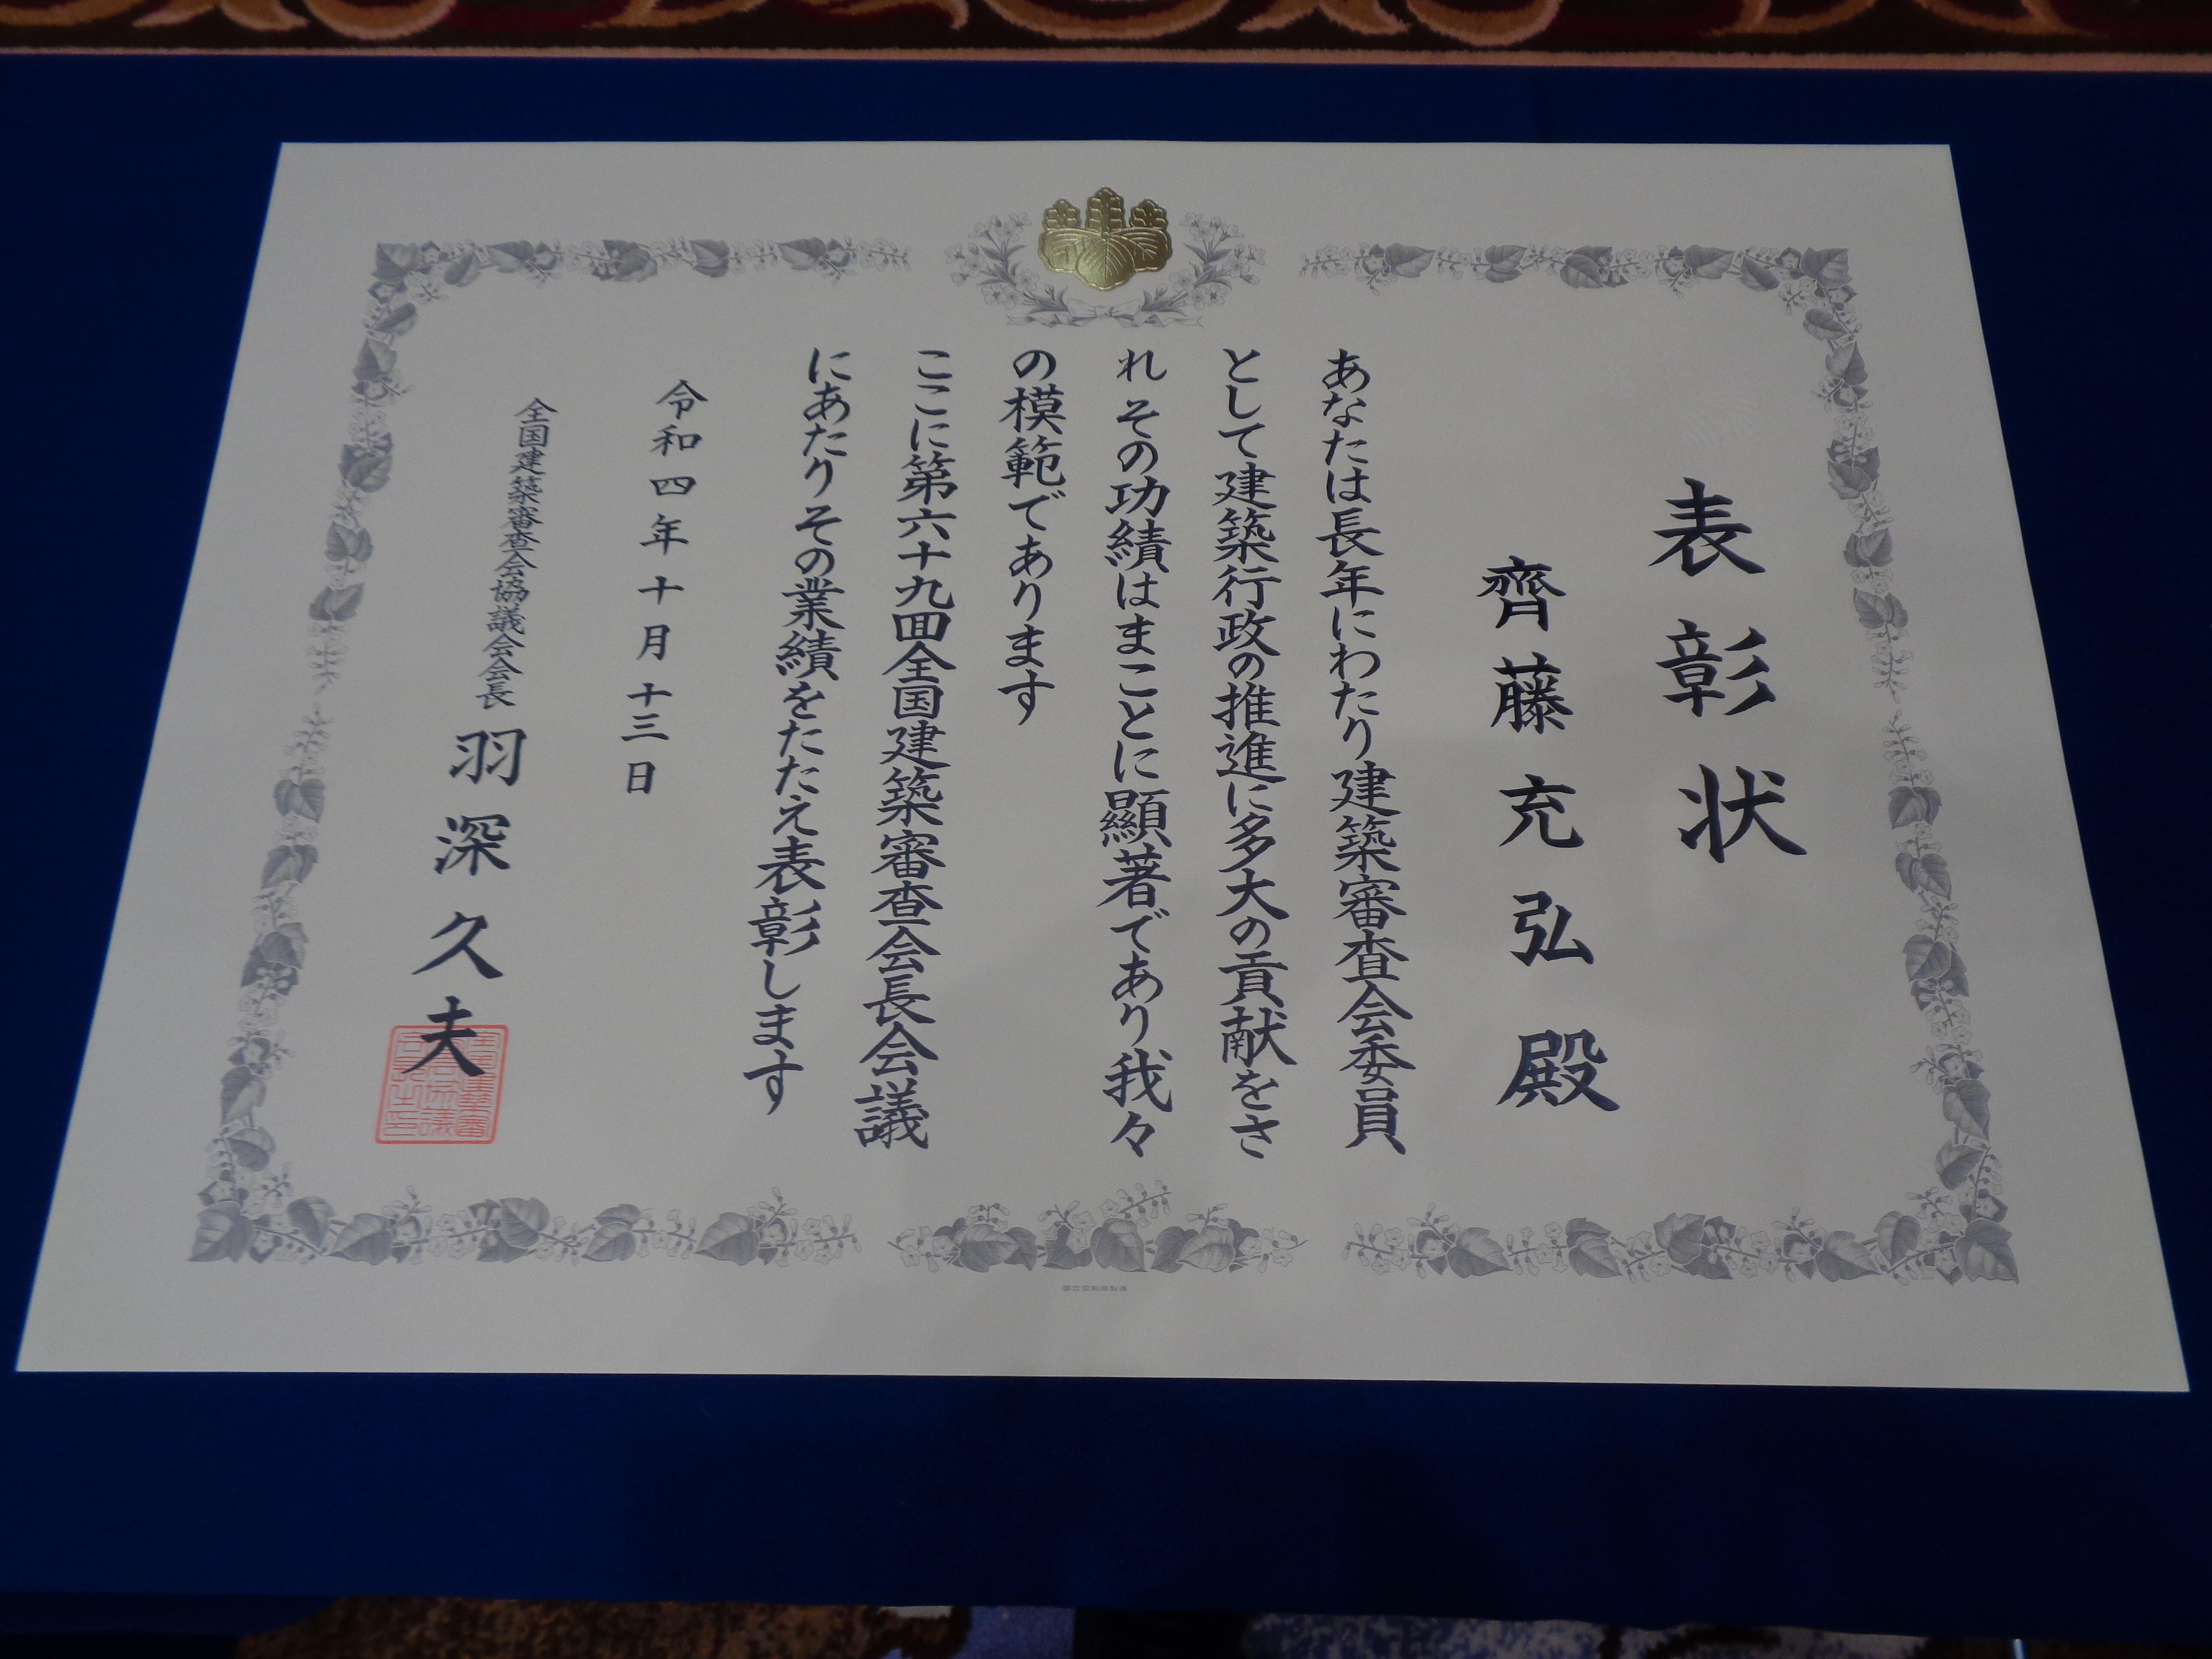 表彰状
齊藤充弘殿
あなたは長年にわたり建築審査会委員
として建築行政の推進に多大の貢献をさ
れ その功績はまことに顯著であり我々
の模範であります
ここに第六十九回全国建築審査会長会議
にあたりその業績をたたえ表彰します
令和四年十月十三日
全国建築審査会協議会会長 羽深久夫
国立印刷局製造